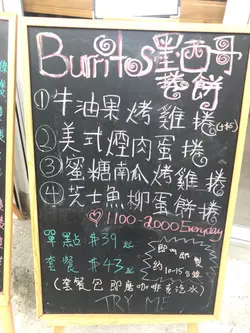 Burritos墨西哥
捲餅
①牛油果烤雞捲(+$5)
②美式煙肉蛋捲
③蜜糖南瓜烤雞捲
④芝士魚柳蛋餅捲
♡1100-2000 Everyday
單點 $39起
套餐 $43起
即叫即製
約10-15分鐘
(套餐包即磨咖啡或汽水)
TRY ME